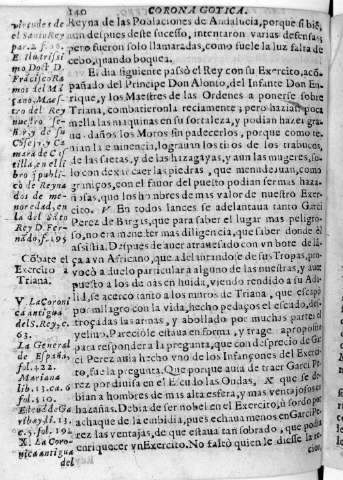 140 CORONA GOTICA.
Reyna de las Poblaciones de Andalucia, porque si bié
aun despues deste sucesso, intentaron varias defensas
pero fueron solo llamaradas, como suele la luz falta de
cebo, quando boquea.
El dia siguiente passò el Rey con su Exercito, acõ-
pañado del Principe Don Alonso, del Infante Don En-
rique, y los Maestres de las Ordenes a ponerse sobre
Triana, combatieronla reciamente; pero hazian poca
mella las maquinas en su fortaleza, y podian hazer gra-
daños los Moros sin padecerlos, porque como te-
nian la eminencia, lograuan los tiros de los trabucos,
de las saetas, y de las hazagayas, y aun las mugeres, so-
lo con dexar caer las piedras, que menudeauan, como
granizos, con el fauor del puesto podian ser mas haza-
ñosas, que los hombres de mas valor de nuestro Exer-
cito. V En todos lances se adelantaua tanto Garci
Perez de Bargas, que para saber el lugar mas peligro-
so, no era menester mas diligencia, que saber donde èl
assistia. Despues de auer atrauesado con vn bote de lã-
ça a vn Africano, que adelantandose de sus Tropas, pro-
vocò a duelo particular a alguno de las nuestras, y aun
puesto a los demas en huida, viendo rendido a su Ad-
lid, se acercò tanto a los muros de Triana, que escapò
por milagro con la vida, hecho pedaços el escudo, des-
troçadas las armas, y abollado por muchas parte
yelmo. Pareciole estaua en forma, y trage a proposito
para responder a la pregunta, que con desprecio de Gar-
ci Perez auia hecho vno de los Infançones del Exerci-
to, fue la pregunta. Que porque auia de traer Garci Pe-
rez por diuisa en el Escudo las Ondas, X que se de-
bian a hombres de mas alta esfera, y mas ventajosos en
hazañas. Debia de ser nobel en el Exercito, ù sordo por
achaque de la embidia, pues echaua menos en Garci Pe-
rez las ventajas, de que estaua tan sobrado, que podia
enriquecer vn Exercito. No faltò quien le diesse la re-
virtudes de
el Santo Rey
par. 2 f. 
E Ilustrissi
mo Doct. D.
Frãcisco Ra
mos del Mã
çano, Maes-
tro del Rey
nuestro Se-
ñor, y de su
Cõsejo, y Ca
mara de Cas-
tilla, en el li
bro q publi-
cò de Reyna
dos de me-
nor edad, en
la del Sãto
Rey D. Fer-
nãdo, f. 195
Cõbate el
Exercito a
Triana.
V. La Coroni
ca antigua
del S. Rey, c.
63.
La General
de España,
fol. 422.
Mariana
lib. 13. ca. 6
fol. 510.
Esteuã de Ga
ribay li. 13.
c. 5. fol. 192
X. La Coro-
nica antigua
del